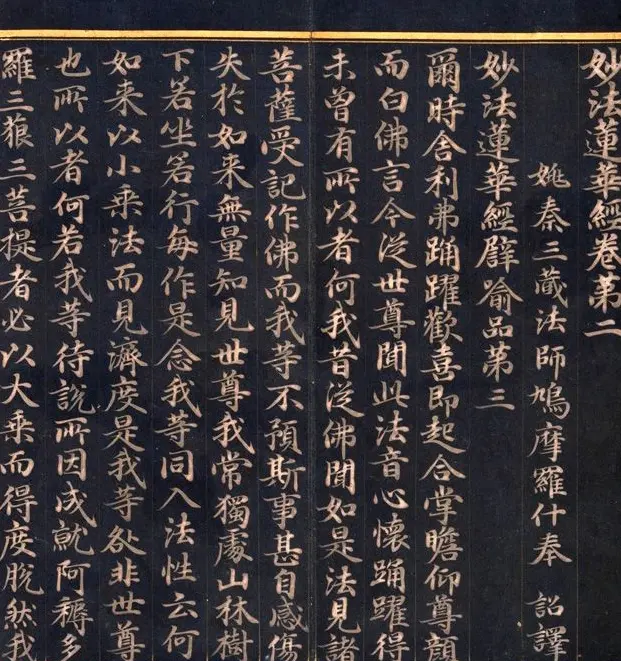 妙法蓮華經卷第二
姚秦三蔵法師鳩摩羅什奉 詔譯
妙法蓮華經譬喻品第三
爾時舍利弗踊躍歡喜即起合掌瞻仰尊顏
而白佛言今従世尊聞此法音心懷踊躍得
未曾有所以者何我昔従佛聞如是法見諸
菩薩受記作佛而我等不預斯事甚自感傷
失於如来無量知見世尊我常獨處山林樹
下若坐若行每作是念我等同入法性云何
如来以小乗法而見濟度是我等咎非世尊
也所以者何若我等待說所因成就阿耨多
羅三藐三菩提者必以大乗而得度脫然我